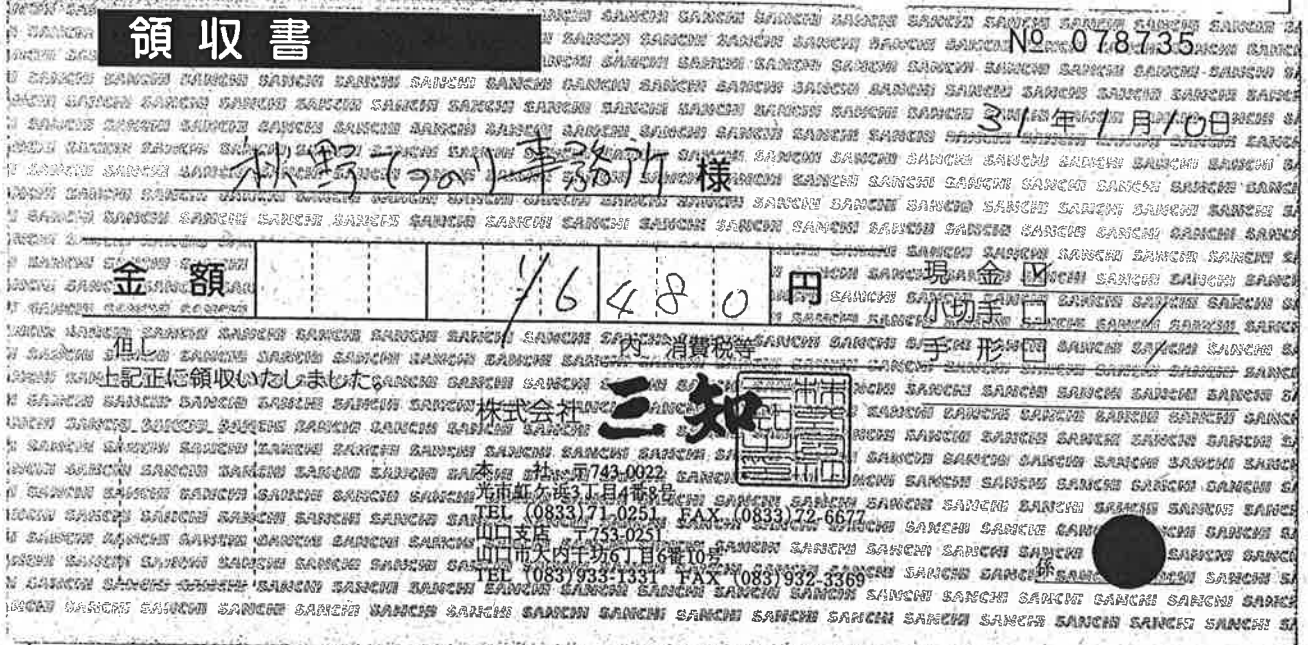 領収書
№ 078735
31年1月10日
秋野てつのり事務所 様
金額 ¥6480 円
現金 ☑
小切手 □
手形 □
但し
内 消費税等
上記正に領収いたしました。
株式会社 三知
本社 〒743-0022
光市虹ケ浜3丁目4番8号
TEL (0833)71-0251 FAX (0833)72-6677
山口支店 〒753-0251
山口市大内千坊6丁目6番10号
TEL (083)933-1331 FAX (083)932-3369
係
SANCHI